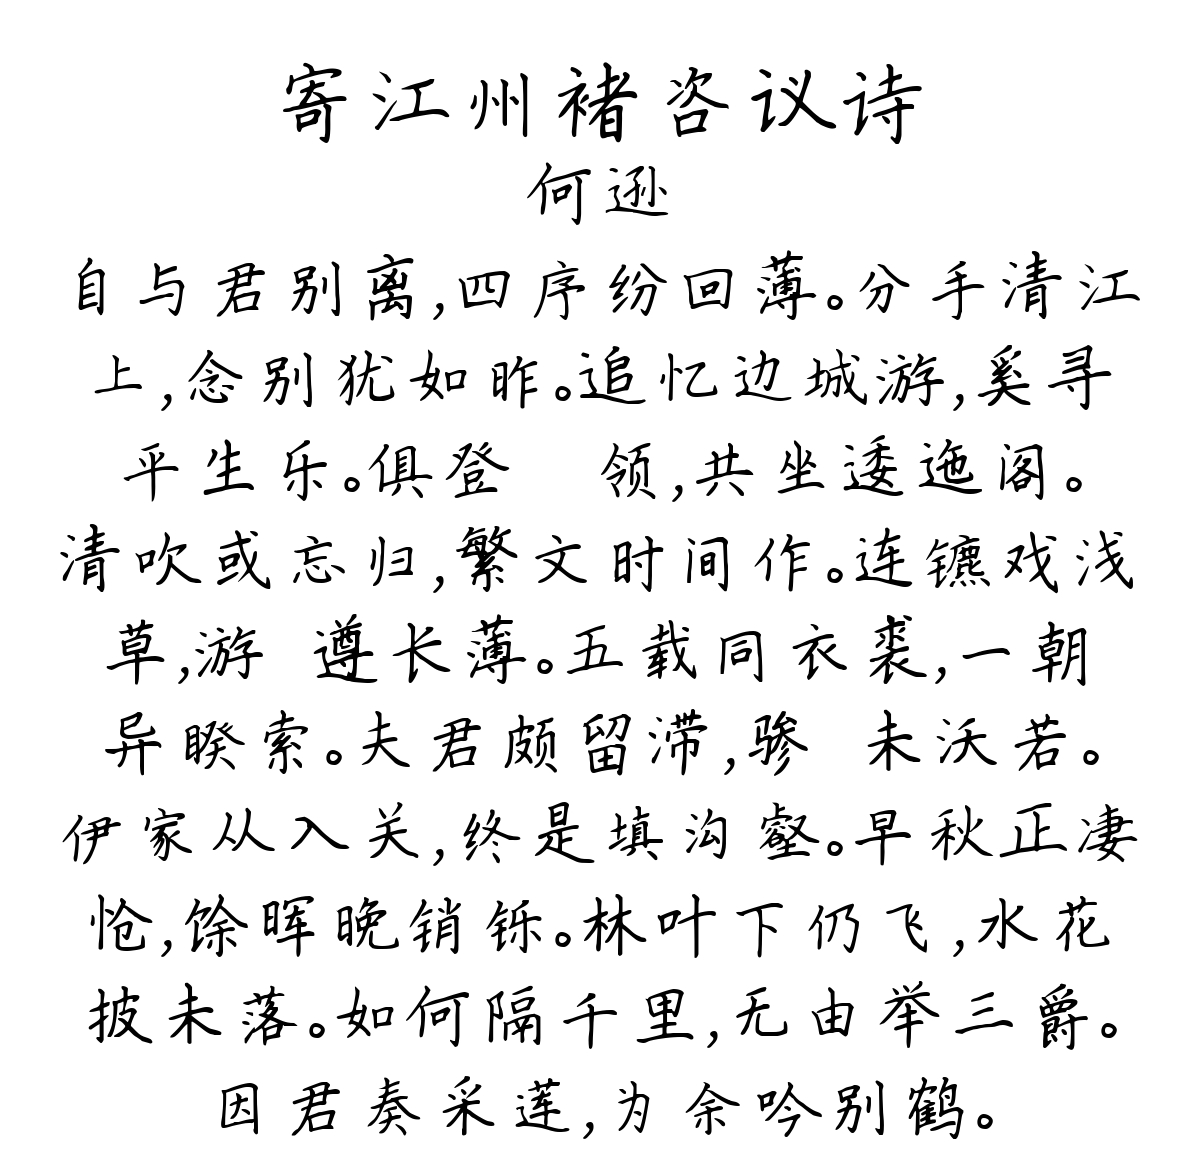 寄江州褚咨议诗
何逊
自与君别离,四序纷回薄。分手清江
上,念别犹如昨。追忆边城游,奚寻
平生乐。俱登 领,共坐逶迤阁。
清吹或忘归,繁文时间作。连镳戏浅
草,游 遵长薄。五载同衣裘,一朝
异暌索。夫君颇留滞,骖 未沃若。
伊家从入关,终是填沟壑。早秋正凄
怆,馀晖晚销铄。林叶下仍飞,水花
披未落。如何隔千里,无由举三爵。
因君奏采莲,为余吟别鹤。